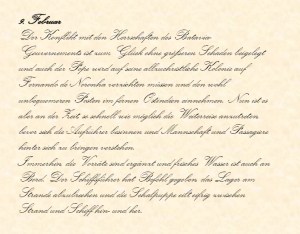 9. Februar
Der Konflikt mit den Herrschaften des Batavia
Gouvernements ist zum Glück ohne größeren Schaden beigelegt
und auch der Pope wird auf seine allzuchristliche Kolonie auf
Fernando de Noronha verzichten müssen und den wohl
unbequemeren Posten im fernen Ostindien annehmen. Nun ist es
aber an der Zeit, so schnell wie möglich die Weiterreise anzutreten,
bevor sich die Aufrührer besinnen und Mannschaft und Passagiere
hinter sich zu bringen verstehen.
Immerhin, die Vorräte sind ergänzt und frisches Wasser ist auch an
Bord. Der Schiffsführer hat Befehl gegeben, das Lager am
Strande abzubrechen und die Schaluppe eilt eifrig zwischen
Strand und Schiff hin und her.